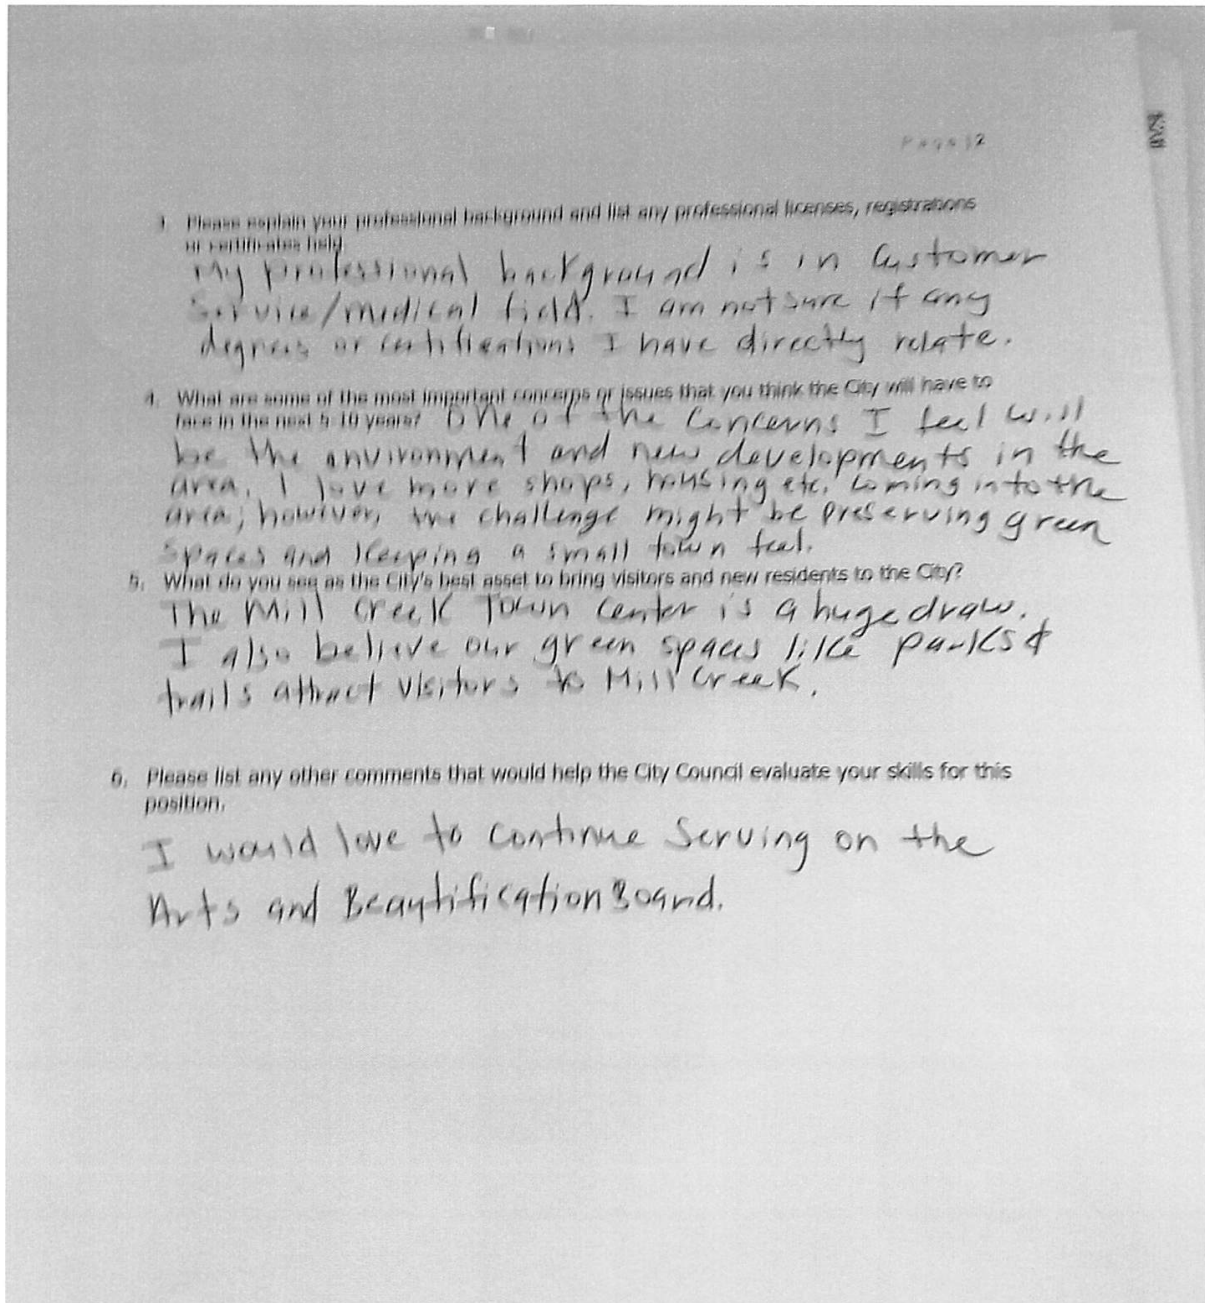 Page | 2
3. Please explain your professional background and list any professional licenses, registrations
or certificates held.
My professional background is in Customer
Service/medical field. I am not sure if any
degrees or certifications I have directly relate.
4. What are some of the most important concerns or issues that you think the City will have to
face in the next 5-10 years? One of the concerns I feel will
be the environment and new developments in the
area. I love more shops, housing etc. coming into the
area; however, the challenge might be preserving green
spaces and keeping a small town feel.
5. What do you see as the City's best asset to bring visitors and new residents to the City?
The Mill Creek Town Center is a huge draw.
I also believe our green spaces like parks &
trails attract visitors to Mill Creek.
6. Please list any other comments that would help the City Council evaluate your skills for this
position.
I would love to continue Serving on the
Arts and Beautification Board.